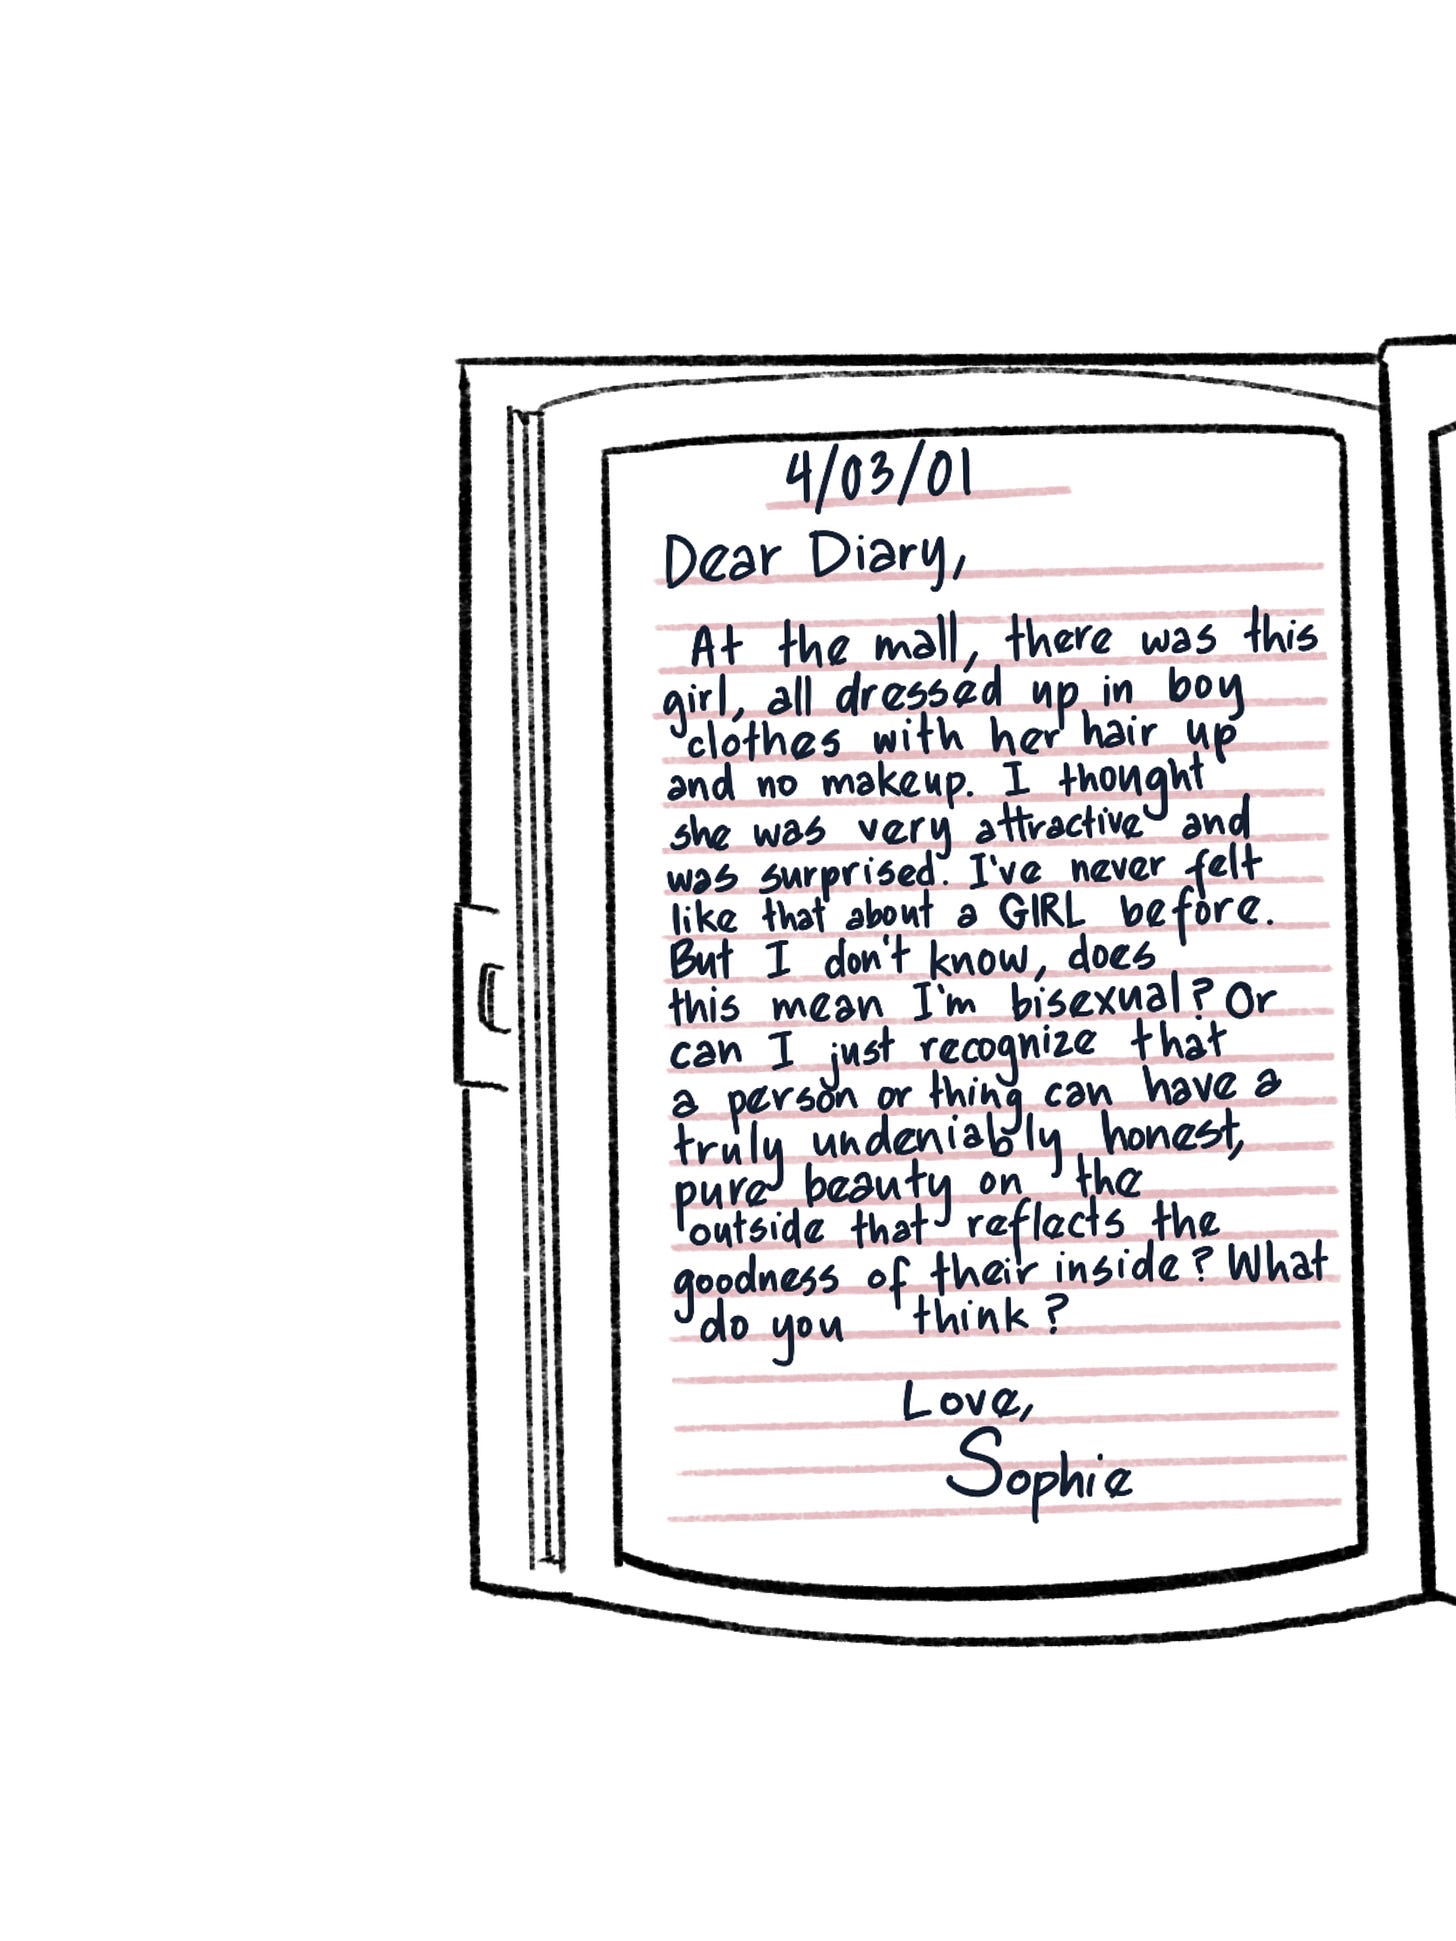 4/03/01
Dear Diary,
At the mall, there was this
girl, all dressed up in boy
clothes with her hair up
and no makeup. I thought
she was very attractive and
was surprised. I've never felt
like that about a GIRL before.
But I don't know, does
this mean I'm bisexual? Or
can I just recognize that
a person or thing can have a
truly undeniably honest,
pure beauty on the
outside that reflects the
goodness of their inside? What
do you think?
Love,
Sophie